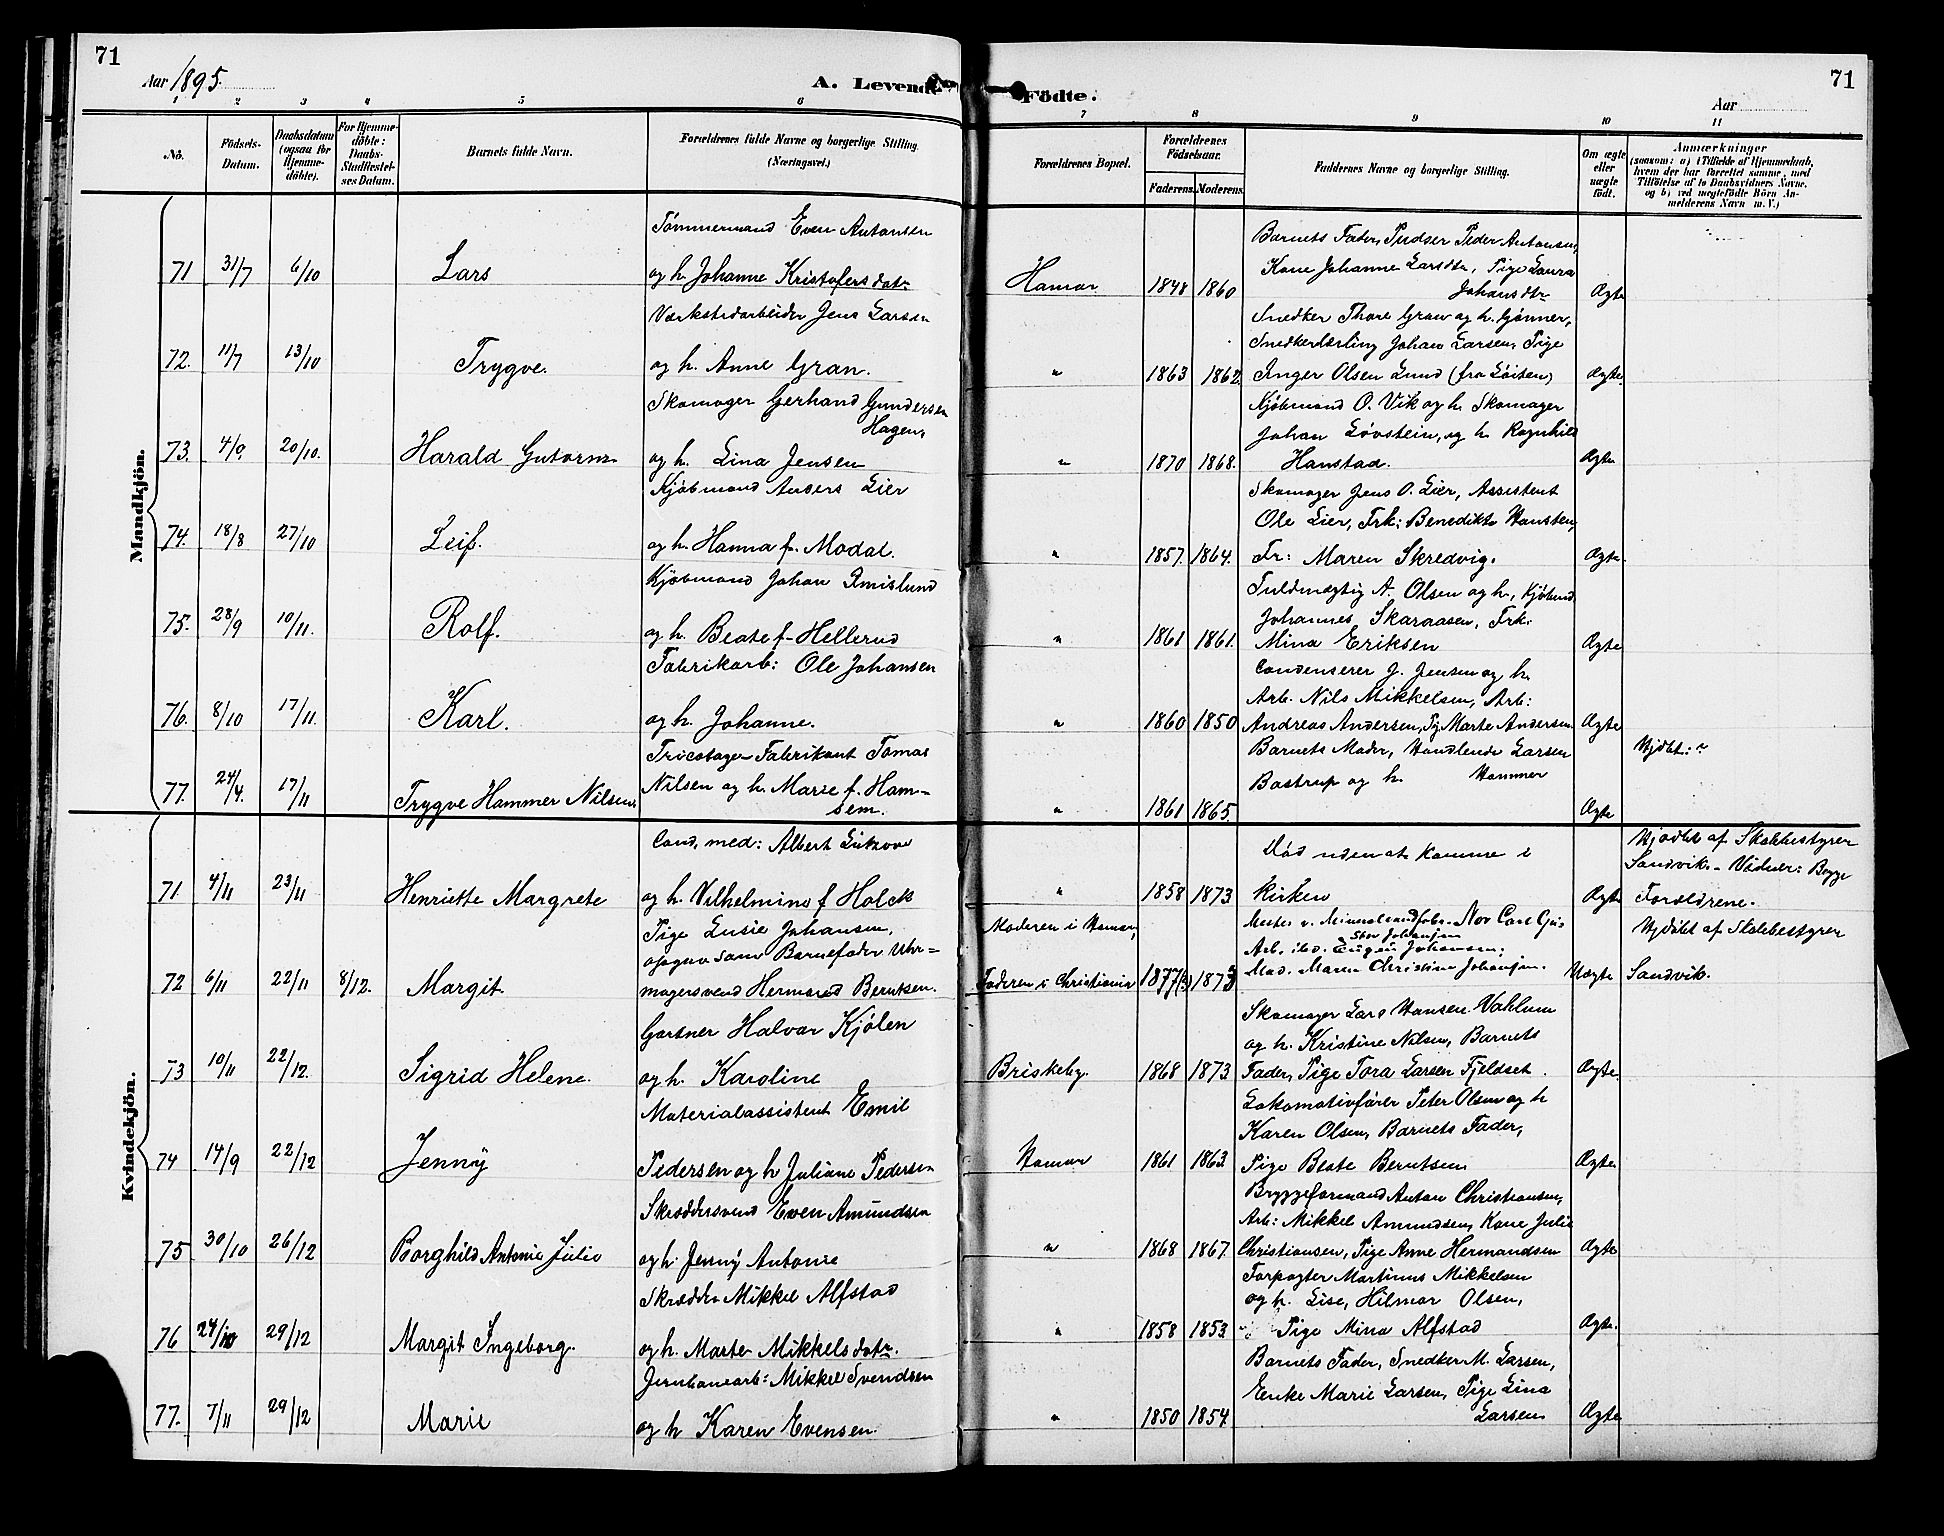 71
Aar 1895.
A. Levende Födte.
71
Aar
1 2 3 4 5 6 7 8 9 10 11
No.
Födsels-Datum.
Daabsdatum (ogsaa for Hjemme-döbte).
For Hjemme-döbte: Daabs-Stadfæstel-ses Datum.
Barnets fulde Navn.
Forældrenes fulde Navne og borgerlige Stilling. (Næringsvei.)
Forældrenes Bopæl.
Forældrenes Födselsaar.
Faderens. Moderens.
Faddernes Navne og borgerlige Stilling.
Om ægte eller uægte födt.
Anmærkninger
(saasom: a) i Tilfælde af Hjemmedaab, hvem der har forrettet samme, med Tilföielse af to Daabsvidners Navne, og b) ved uægtefödte Börn An-melderens Navn m. V.)
Mandkjön.
Tømmermand Even Antonsen
Barnets Fader, Pudser Peder Antonsen,
Kone Johanne Larsdtr, Pige Laura
71 31/7 6/10 Lars og h. Johanne Kristofersdatr Hamar 1848 1860 Johansdtr Ægte
Værkstedarbeider Jens Larsen
Snedker Thore Gran og h. Gunner,
Snedkerlærling Johan Larsen, Pige
72. 11/7 13/10 Trygve. og h. Anne Gran. " 1863 1862. Inger Olsen Lund (fra Löiten) Ægte.
Skomager Gerhard Gundersen
Hagen,
Kjöbmand O. Vik og h. Skomager
Johan Lövstein, og h. Ragnhild
73. 4/9. 20/10. Harald Gutorm og h. Lina Jensen " 1870 1868. Hanstad. Ægte
Kjøbmand Anders Lier
Skomager Jens O. Lier, Assistent
Ole Lier, Frk: Benedikte Hansten,
74. 18/8 27/10 Leif. og h. Hanna f. Modal. " 1857. 1864. Fr: Maren Skredvig. Ægte.
Kjøbmand Johan Smislund
Fuldmægtig A. Olsen og h., Kjöbmd
Johannes Skaraasen, Frk:
75. 28/9 10/11. Rolf. og h. Beate f. Hellerud " 1861 1861. Mina Eriksen Ægte
Fabrikarb: Ole Johansen
Condenserer J. Jensen og h.
Arb. Nils Mikkelsen, Arb:
76. 8/10 17/11. Karl. og h. Johanne. " 1860 1850 Andreas Andersen, Pg. Marte Andersen Ægte
Tricotager Fabrikant Tomas
Nilsen og h. Marie f. Ham-
Barnets Moder, Handlende Larsen
Bastrup og h. Hammer
Hjdbt:
77. 24/4. 17/11 Trygve Hammer Nilsen. sem. " 1861 1865. Ægte
Kvindekjön.
Cand. med: Albert Lützow
Död uden at komme i
Hjdbt af Skolebestyrer
Sandvik. - Vidner: Begge
71 4/11 23/11 Henriette Margrete og h. Vilhelmine f Holck " 1858 1873 Kirken Ægte Forældrene.
Pige Lusie Johansen,
opgivet som Barnefader Uhr-
Moderen i Hamar,
Stor Johansen
Arb. ibd. Eugen Johansen.
Hjdbt af Skolebestyrer
72 6/11 22/11 8/12. Margit. magersvend Hermand Berntsen. Faderen i Christiania 1877(?) 1875 Mad. Maren Christine Johansen. Uægte Sandvik.
Gartner Halvor Kjölen
Skomager Lars Hansen Vahlum
og h. Kristine Nilsen, Barnets
73 10/11 22/12. Sigrid Helene. og h. Karoline Briskeby. 1868 1873. Fader, Pige Tora Larsen Fjeldset. Ægte.
Materialassistent Emil
Lokomotivfører Peter Olsen og h
Karen Olsen, Barnets Fader,
74 14/9 22/12 Jenny Pedersen og h Juliane Pedersen Hamar 1861 1863 Pige Beate Berntsen Ægte
Skræddersvend Even Amundsen
Bryggeformand Anton Christiansen,
Arb: Mikkel Amundsen, Kone Julie
75 30/10 26/12 Borghild Antonie Julie og h. Jenny Antonie " 1868 1867. Christiansen, Pige Anne Hermandsen Ægte
Skrædder Mikkel Alfstad
Forpagter Martinus Mikkelsen
og h. Lise, Hilmar Olsen,
76 24/10 29/12 Margit Ingeborg. og h. Marte Mikkelsdatr. " 1858 1853 Pige Mina Alfstad Ægte.
Jernbanearb: Mikkel Svendsen
Barnets Fader, Snedker M. Larsen,
Enke Marie Larsen, Pige Lina
77. 7/11 29/12 Marie og h Karen Evensen. " 1850 1854. Larsen Ægte